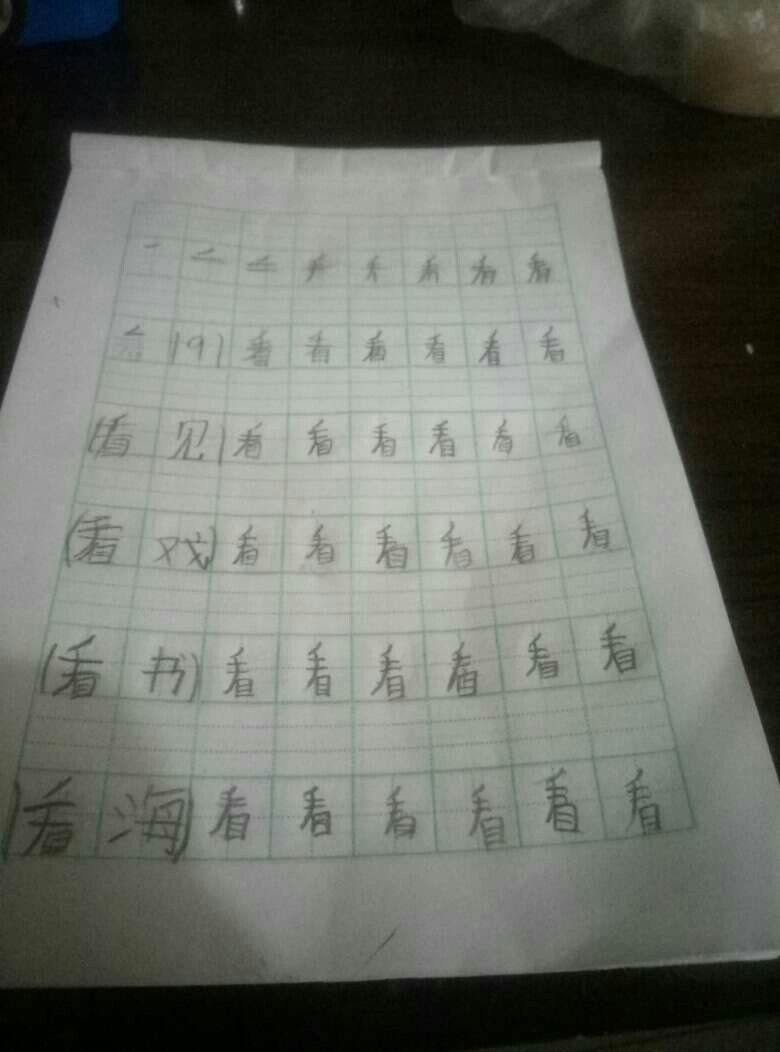 一 二 三 手 看 看 看
看 (9) 看 看 看 看 看 看
(看 见) 看 看 看 看 看 看
(看 戏) 看 看 看 看 看 看
(看 书) 看 看 看 看 看 看
(看 海) 看 看 看 看 看 看